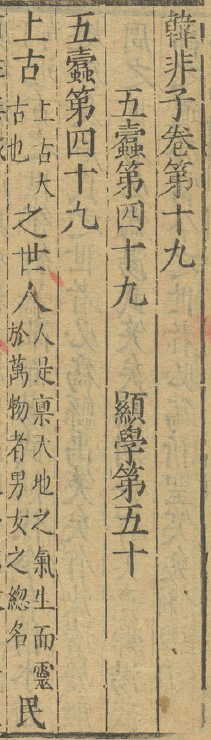 韓非子卷第十九
五蠹第四十九 顯學第五十
五蠹第四十九
上古上古大古也之世人人是稟天地之氣生而靈於萬物者男女之緫名民